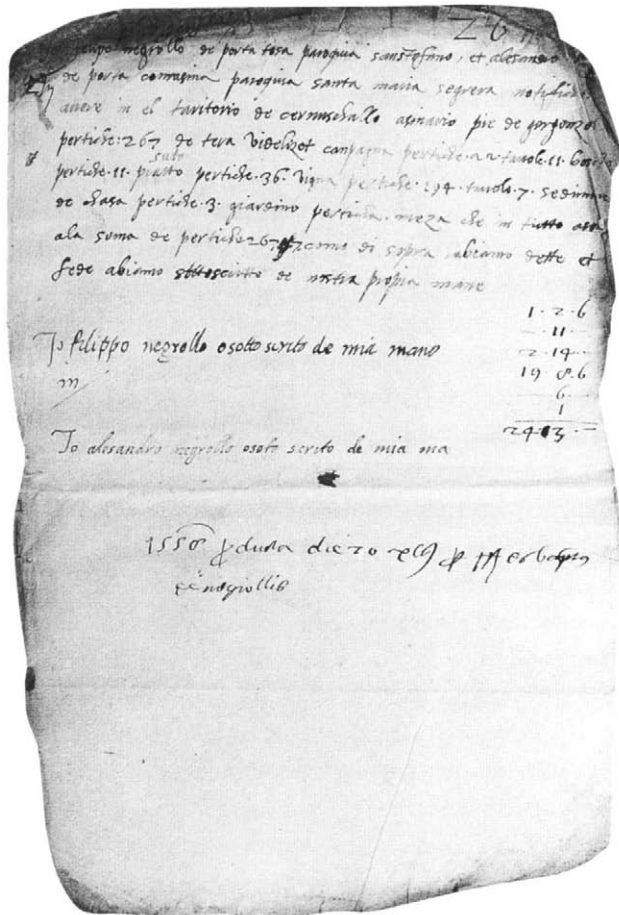 267
filipo negrollo de porta tosa paroquia sanstefano, et alesandro
de porta comasina paroquia santa maria segrera notifich
avere in el taritorio de cernuschallo asinario pie de gorgonzol
pertiche 267 de tera videlizet canpagna pertiche 22 tavole 11 bosch
suto
pertiche 11 pratto pertiche 36 vigna pertiche 194 tavole 7 sedimme
de chasa pertiche 3 giardino pertiche meza che in tutto
ala soma de pertiche 267 como di sopra abiamo dette et
fede abiamo sottoscritto de nostra propia mane
1 · 2 · 6
11
Jo filippo negrollo o sotto scrito de mia mano
2 · 14
19 8 · 6
6
1
24 13
Jo alesandro negrollo o soto scrito de mia ma
1550 die 20
de negrollis